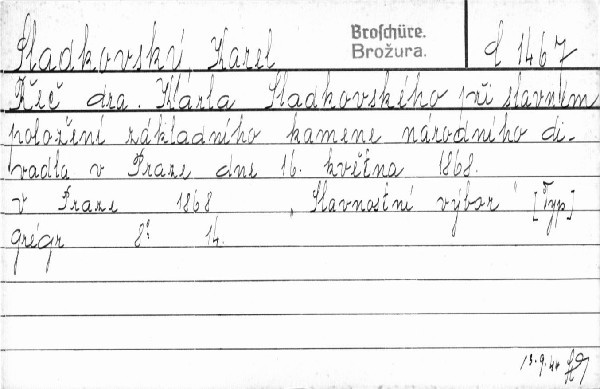 Sladkovský, Karel
Broschüre.
Brožura.
d 1467
Řeč dra. Karla Sladkovského při slavném
položení základního kamene národního di-
vadla v Praze dne 16. května 1868.
v Praze 1868 „Slavnostní výbor" [Typ]
grégr 8° 14.
13.9.44